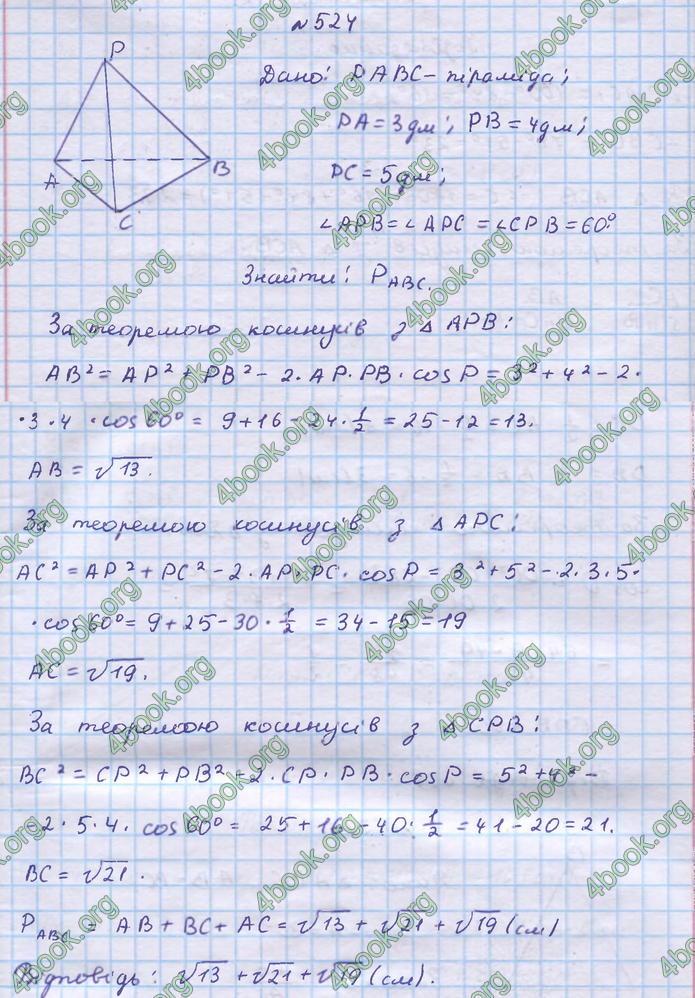 №524
P
A
B
C
Дано: PABC – піраміда;
PA = 3 дм; PB = 4 дм;
PC = 5 дм;
∠APB = ∠APC = ∠CPB = 60°
Знайти: P_ABC.
За теоремою косинусів з △APB:
AB² = AP² + PB² – 2·AP·PB·cosP = 3² + 4² – 2·
·3·4·cos60° = 9+16 – 24·1/2 = 25–12 = 13.
AB = √13.
За теоремою косинусів з △APC:
AC² = AP² + PC² – 2·AP·PC·cosP = 3² + 5² – 2·3·5·
·cos60° = 9+25–30·1/2 = 34–15 = 19
AC = √19.
За теоремою косинусів з △CPB:
BC² = CP² + PB² – 2·CP·PB·cosP = 5² + 4² –
–2·5·4·cos60° = 25+16–40·1/2 = 41–20 = 21.
BC = √21.
P_ABC = AB + BC + AC = √13 + √21 + √19 (см)
Відповідь: √13 + √21 + √19 (см).
4book.org